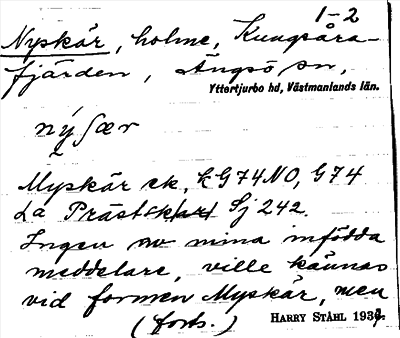 1-2
Nyskär, holme, Kungsåra-
fjärden, Ängsö sn,
Yttertjurbo hd, Västmanlands län.
nýʃær
Myskär ek, k G74NO, G74
La Prästsk(är) Sj 242.
Ingen av mina infödda
meddelare, ville kännas
vid formen Myskär, men
(forts.) HARRY STÅHL 1939.